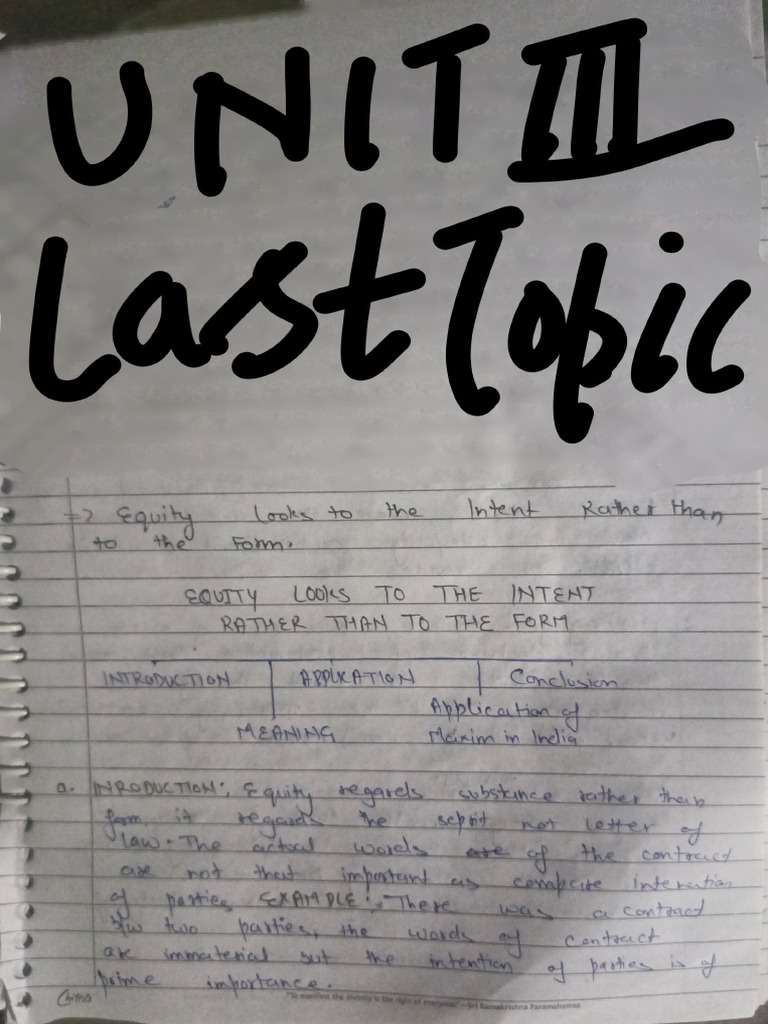 UNIT III
Last Topic
=> Equity looks to the Intent Rather than
to the Form.
EQUITY LOOKS TO THE INTENT
RATHER THAN TO THE FORM
INTRODUCTION APPLICATION Conclusion
Application of
MEANING Maxim in India
a. INRODUCTION:, Equity regards substance rather than
form, it regards the seprit not letter of
law. The actual words are of the contract
are not that important as compare intention
of parties EXAMPLE:, There was a contract
b/w two parties, the words of contract
are immaterial but the intention of parties is of
prime importance.
"To manifest the divinity is the right of everyone." – Sri Ramakrishna Paramahamsa